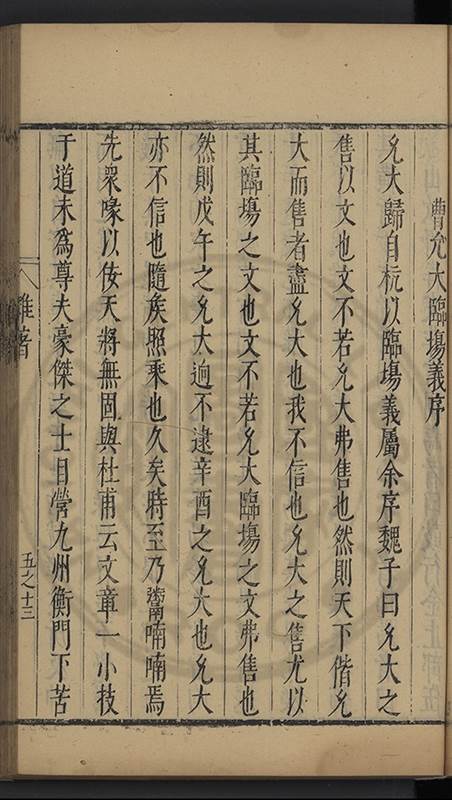 曹允大臨塲義序
允大歸自杭以臨塲義屬余序魏子曰允大之
售以文也文不若允大弗售也然則天下偕允
大而售者盡允大也我不信也允大之售尤以
其臨塲之文也文不若允大臨塲之文弗售也
然則戊午之允大逈不逮辛酉之允大也允大
亦不信也隨矦照乘也久矣時至乃鬻喃喃焉
先衆喙以佞天將無固與杜甫云文章一小技
于道未爲尊夫豪傑之士目營九州衡門下苦
雜著
五之十三